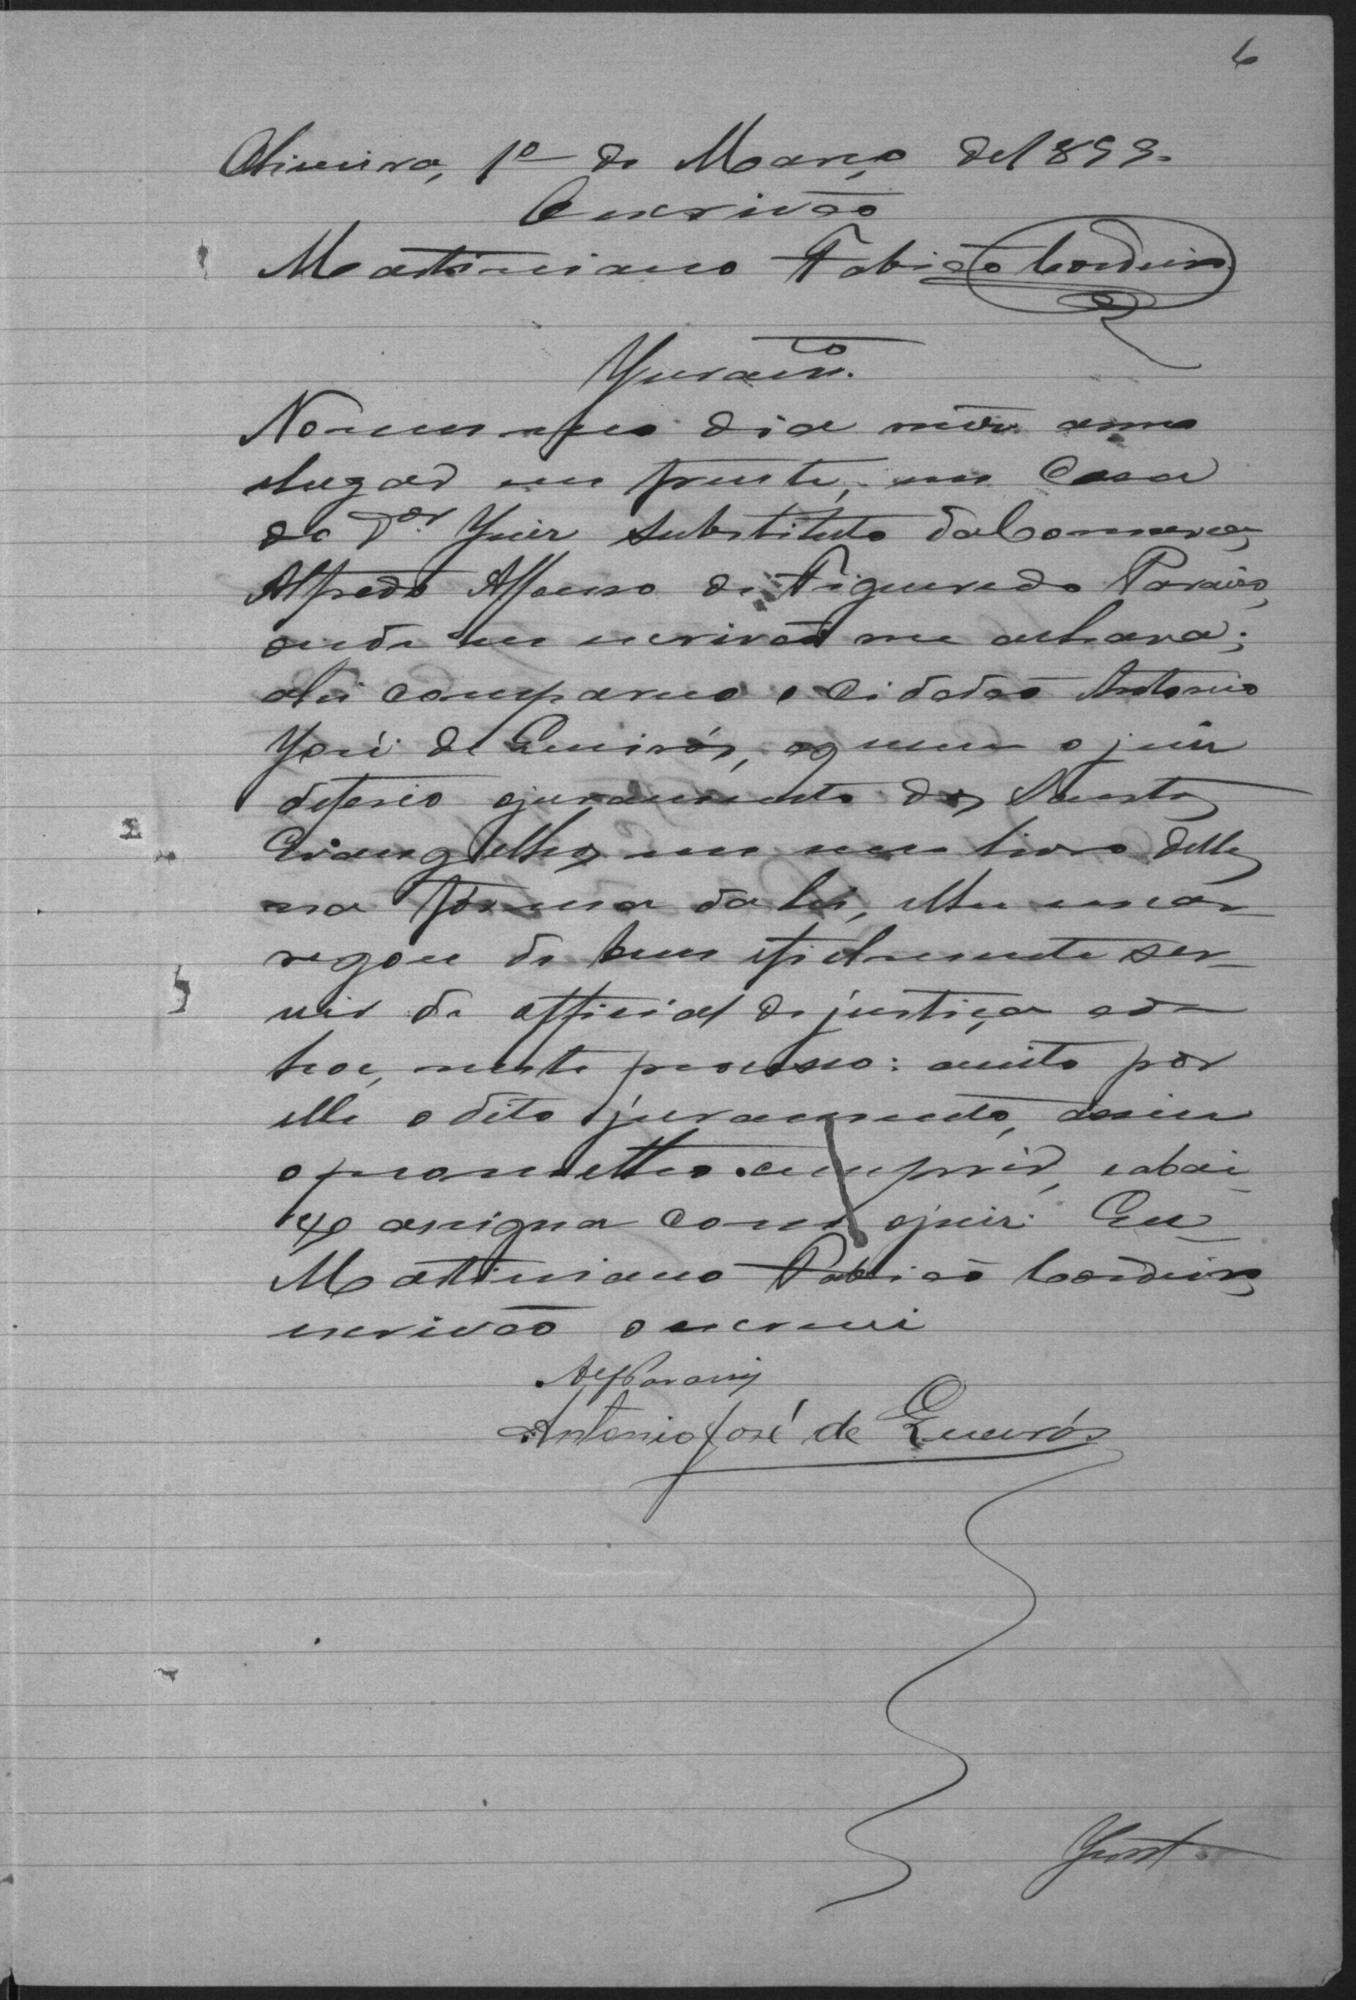 6
Oliveira, 1º de Março de 1899.
O escrivão
Martiniano Fabião Cordeiro
Juramto.
No mesmo dia mez anno
e lugar em frente, em Casa
do Dor. Juiz substituto da Comarca,
Alfredo Affonso de Figueiredo Paraiso,
onde eu escrivão me achava;
ahi compareceo o Cidadão Antonio
José de Queirós, a quem o juiz
deferio o juramento dos Santos
Evangelhos em um livro delles
na fórma da lei, e lhe encar-
regou de bem e fielmente ser-
vir de official de justiça ad-
hoc, neste processo: aceito por
elle o dito juramento, assim
o prometteo cumprir, e abai-
xo assigna com o juiz. Eu
Martiniano Fabião Cordeiro,
escrivão o escrevi
Antonio José de Queirós